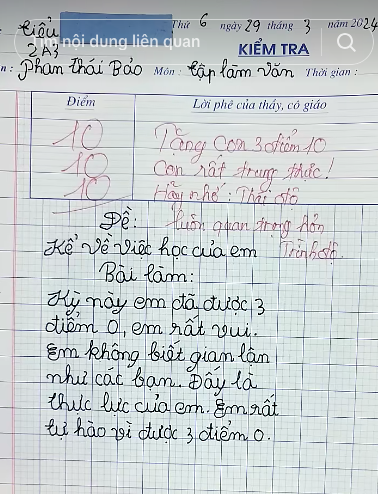 Thứ 6 ngày 29 tháng 3 năm 2024
Tiểu
nội dung liên quan
2A3
KIỂM TRA
Phan Thái Bảo Môn: Tập làm văn Thời gian:
Điểm
Lời phê của thầy, cô giáo
10
Tặng con 3 điểm 10
10
Con rất trung thực!
10
Hãy nhớ: Thái độ
Đề:
luôn quan trọng hơn
Kể về việc học của em
Trình độ.
Bài làm:
Kỳ này em đã được 3
điểm 0, em rất vui.
Em không biết gian lận
như các bạn. Đây là
thực lực của em. Em rất
tự hào vì được 3 điểm 0.